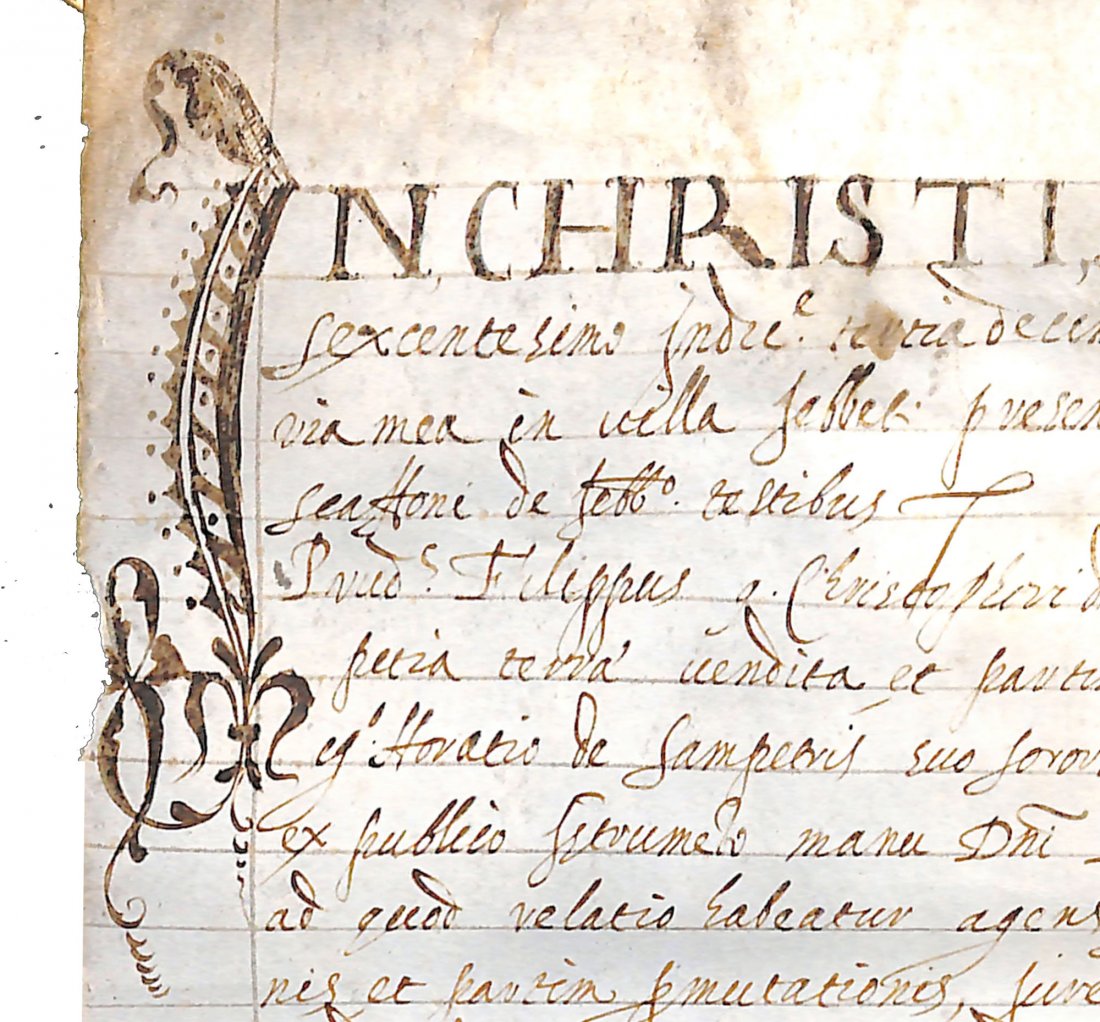 IN, CHRISTI,
sexcentesimo Indic.e tertia decim
via mea in villa sebbet: presen
de sebb.o testibus
Prud.s Filippus q. Christophori d
petia terra vendita et partim
Meg.o Horatio de sampetris suo soror
ex publico Istrumeto manu Dni
ad quod relatio habeatur agens
nis et partim pmutationis, jure